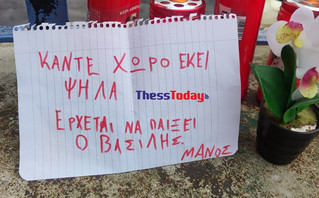 ΚΑΝΤΕ ΧΩΡΟ ΕΚΕΙ
ΨΗΛΑ
ThessToday
ΕΡΧΕΤΑΙ ΝΑ ΠΑΙΞΕΙ
Ο ΒΑΣΙΛΗΣ.
ΜΑΝΟΣ